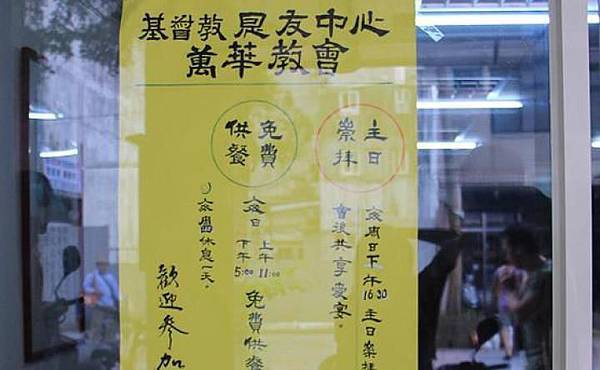 基督教恩友中心
萬華教會
主日
崇拜
每周日下午16:30主日崇拜
會後共享愛宴。
免費
供餐
每日
上午11:00
下午5:00
免費供餐
每周休息一天。
歡迎參加